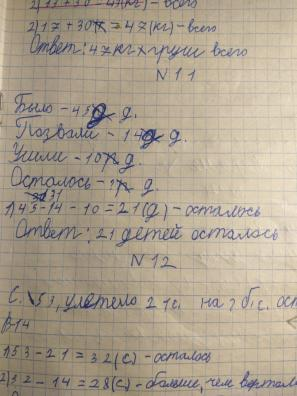 2) 17 + 30 = 47 (кг) - всего
Ответ: 47 кг груш всего
N 11
Было - 45 д.
Позвали - 14 д.
Ушли - 10 д.
Осталось - ? д.
31
1) 45 - 14 - 10 = 21 (д) - осталось
Ответ: 21 детей осталось
N 12
С. 53, улетело 21 с. на ? б. с. ост
В 14
1) 53 - 21 = 32 (с) - осталось
2) 32 - 14 = 28 (с) - больше, чем